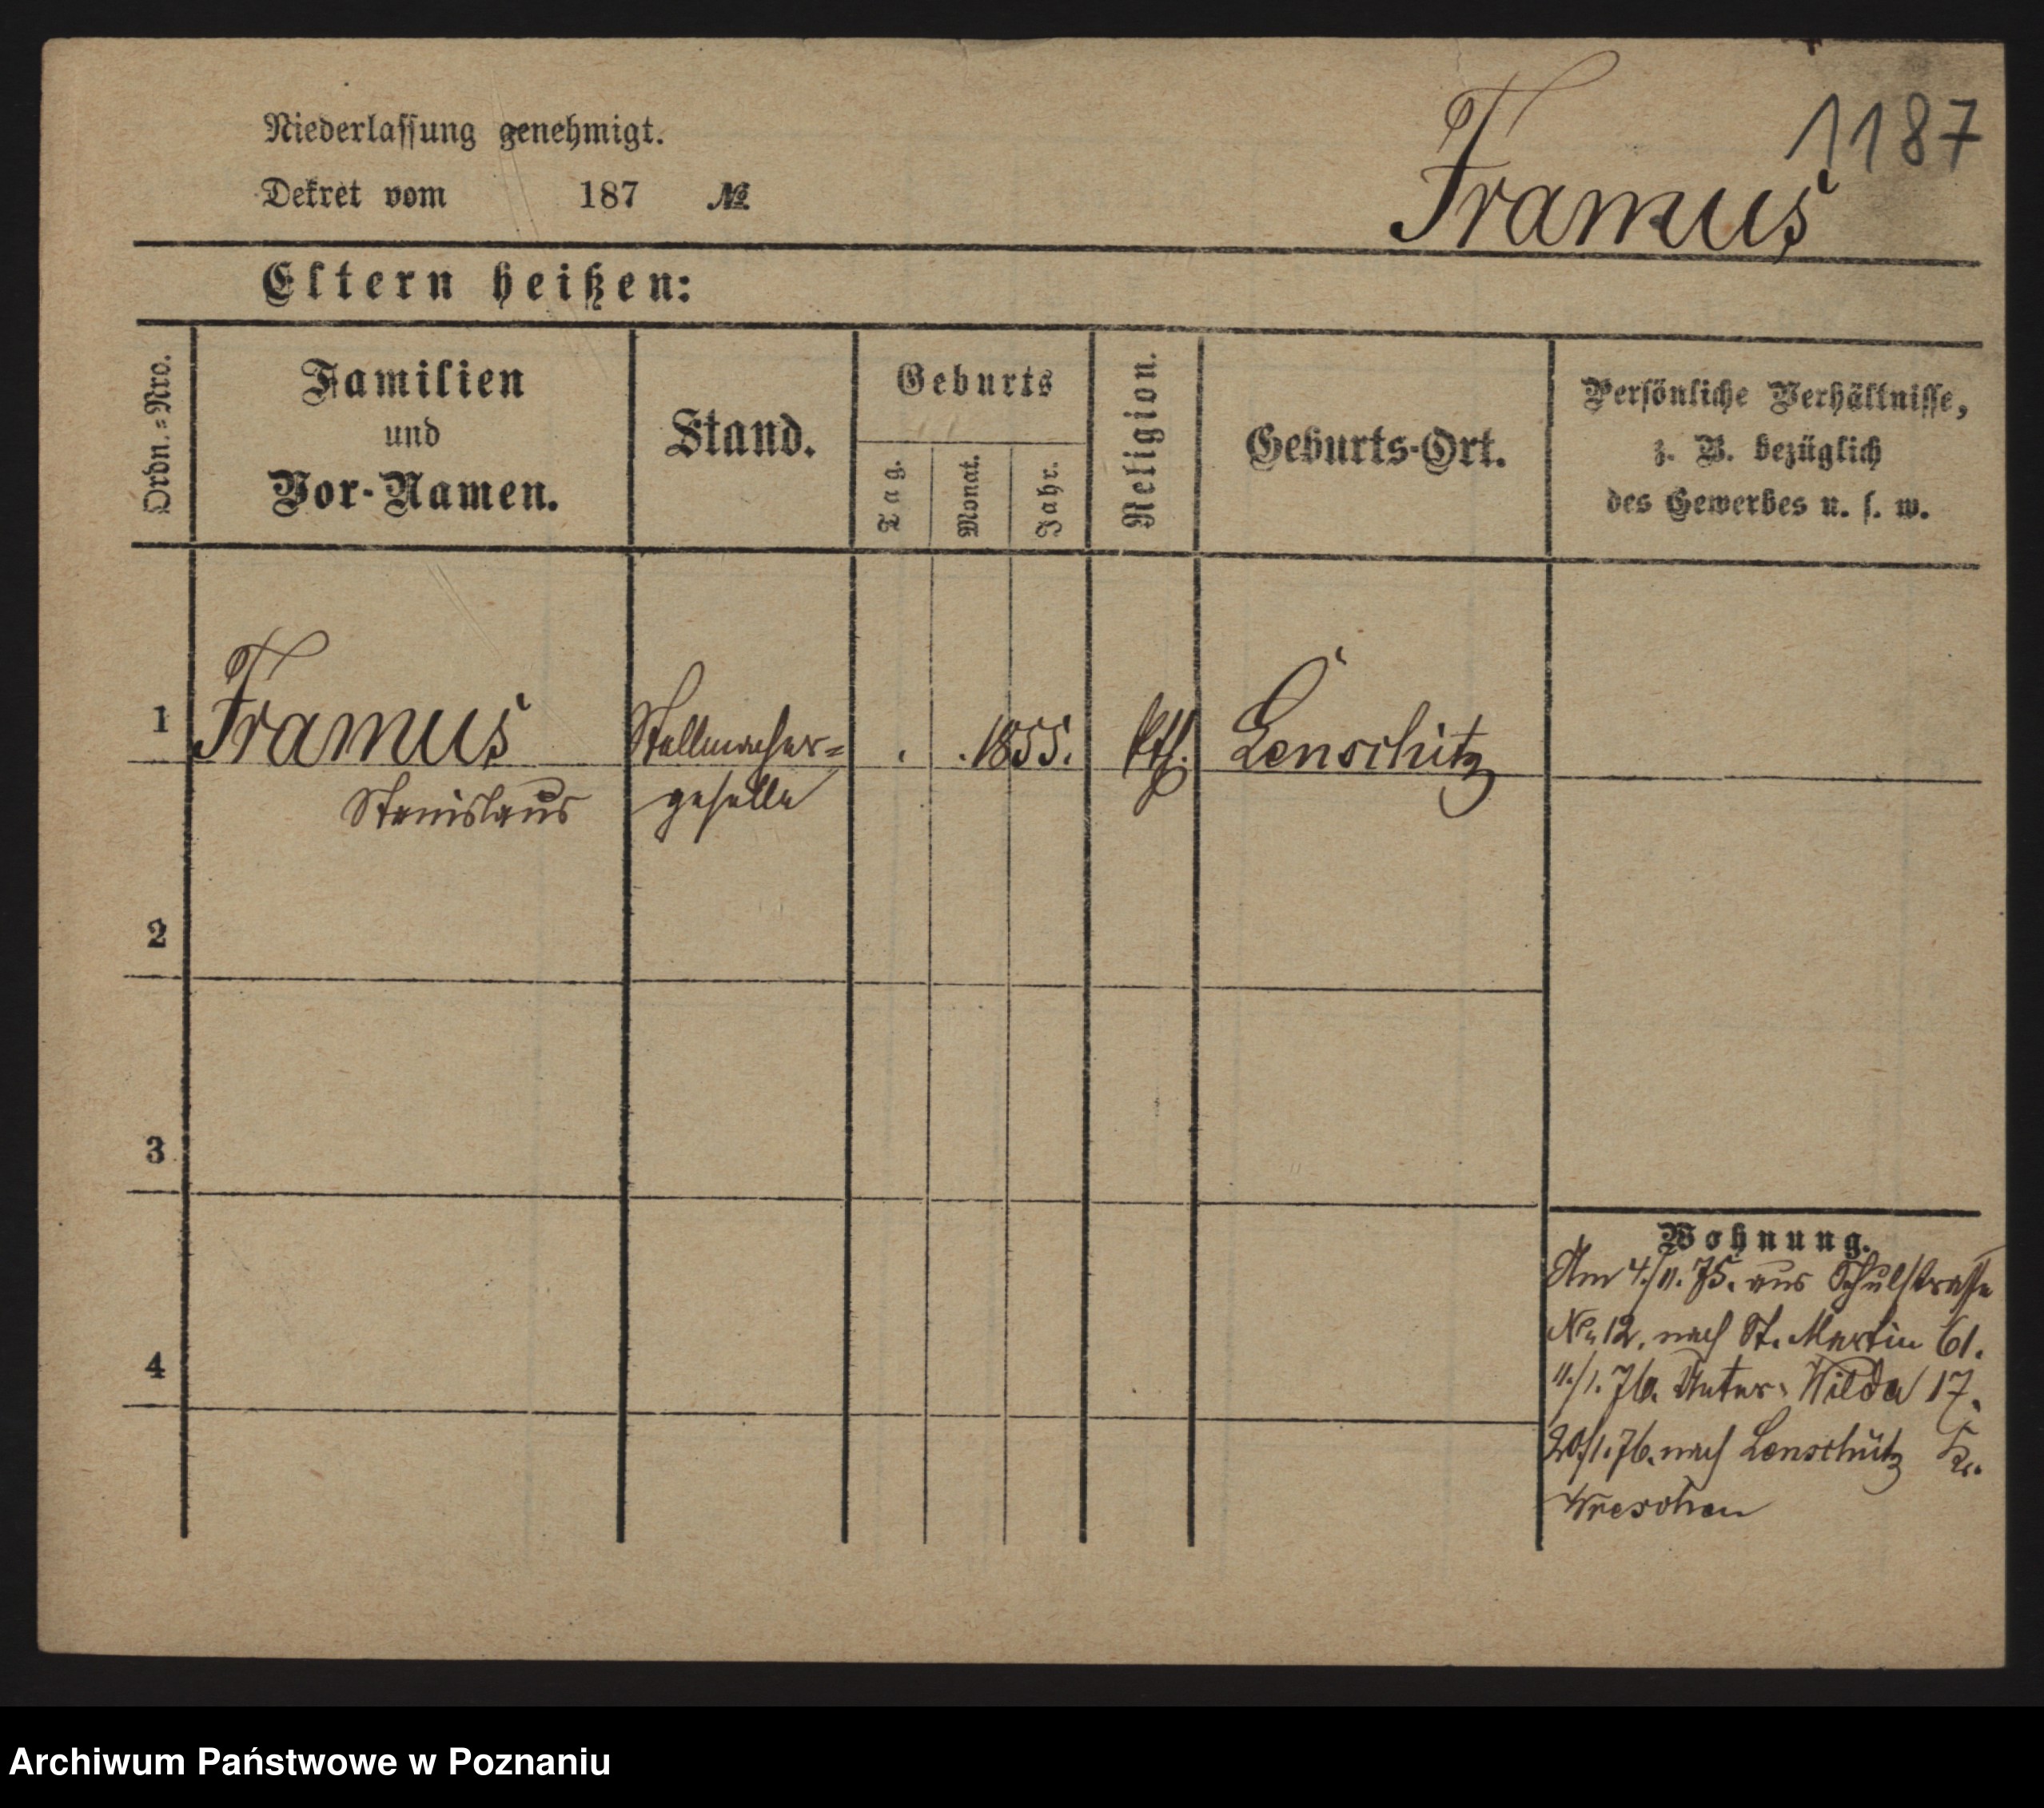 1187
Framus
Niederlassung genehmigt.
Dekret vom 187 №
Eltern heißen:
Ordn.=Nro.
Familien
und
Vor-Namen.
Stand.
Geburts
Tag.
Monat.
Jahr.
Religion.
Geburts-Ort.
Persönliche Verhältnisse,
z. B. bezüglich
des Gewerbes u. s. w.
1 Framus Stellmacher= . . 1855. kth. Lenschitz
Stanislaus geselle
2
3
4
Wohnung.
Am 4./11. 75. aus Schulstrasse
No 12. nach St. Martin 61.
11./1. 76. Unter-Wilda 17.
20/1. 76. nach Lenschütz Kr.
Wreschen
Archiwum Państwowe w Poznaniu